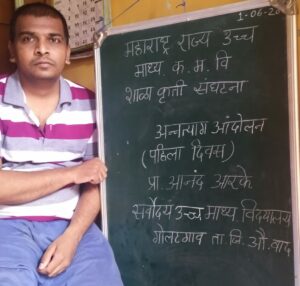 1-06-20
महाराष्ट्र राज्य उच्च
माध्य. क. म. वि
शाळा कृती संघटना
अन्नत्याग आंदोलन
(पहिला दिवस)
प्रा. आनंद आरके
सर्वोदय उच्च माध्य विद्यालय
गोलटगाव ता. जि. औ. बाद